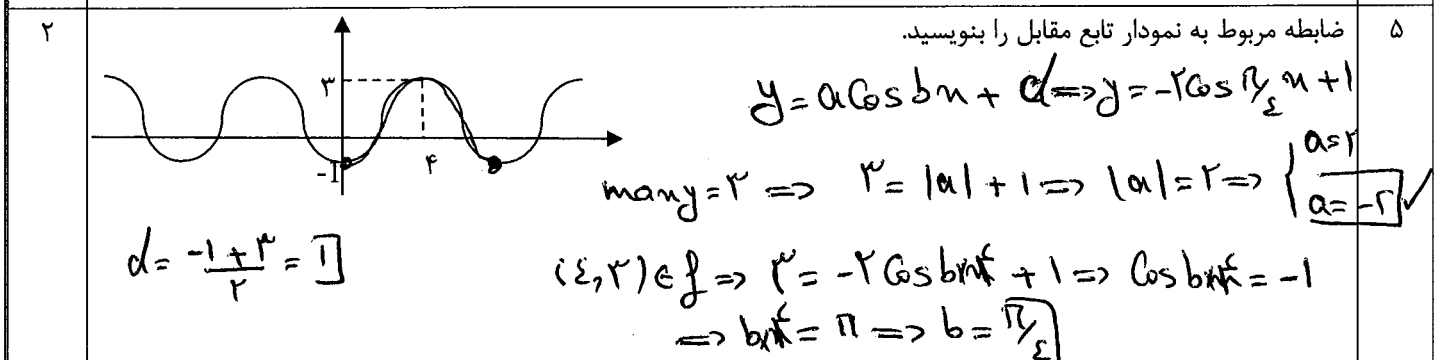 ۵ ضابطه مربوط به نمودار تابع مقابل را بنویسید. ۲
۳
-1
۴
y = a Cos bx + d => y = -۲ Cos π/٤ x + ۱
max y = ۳ => ۳ = |a| + ۱ => |a| = ۲ => { a = ۲
a = -۲ ✓
d = (-۱ + ۳)/۲ = ۱
(٤, ۳) ∈ f => ۳ = -۲ Cos b×٤ + ۱ => Cos b×٤ = -۱
=> b×٤ = π => b = π/٤